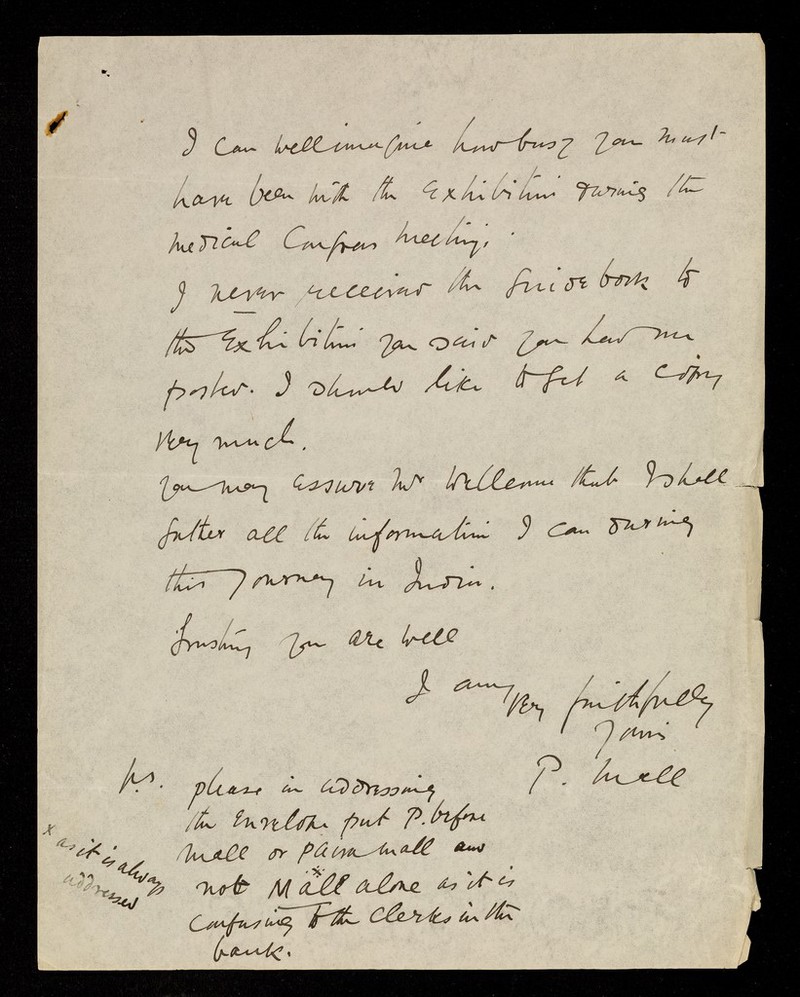 I can well imagine how busy you must
have been with the Exhibition during the
medical Congress meeting.
I never received the guide book to
the Exhibition you said you had me
posted. I should like to get a copy
very much.
you may assure Mr Wellcome that I shall
gather all the information I can during
this Journey in India.
Trusting you are well
I am very faithfully
yours
P. Mall
p.s. please in addressing
the Envelope put P. before
Mall or Paira Mall and
not Mall alone as it is
confusing to the Clerks in the
bank.
x as it is always
addressed